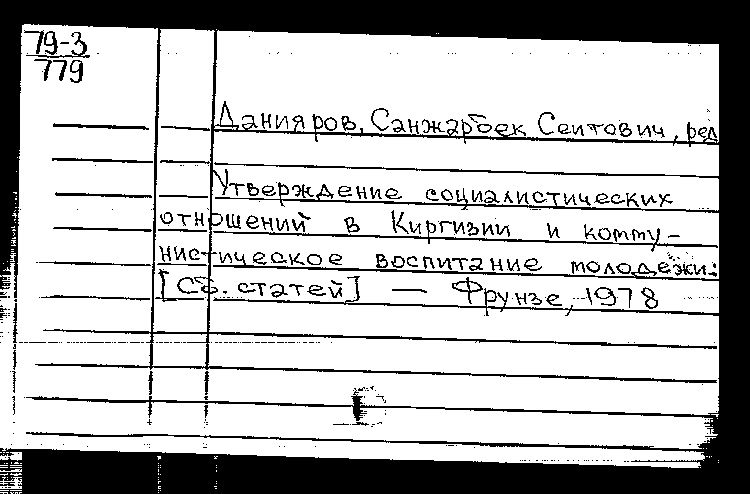 79-3
779
Данияров, Санжарбек Сеитович, ред
Утверждение социалистических
отношений в Киргизии и комму-
нистическое воспитание молодежи:
[Сб. статей] — Фрунзе, 1978